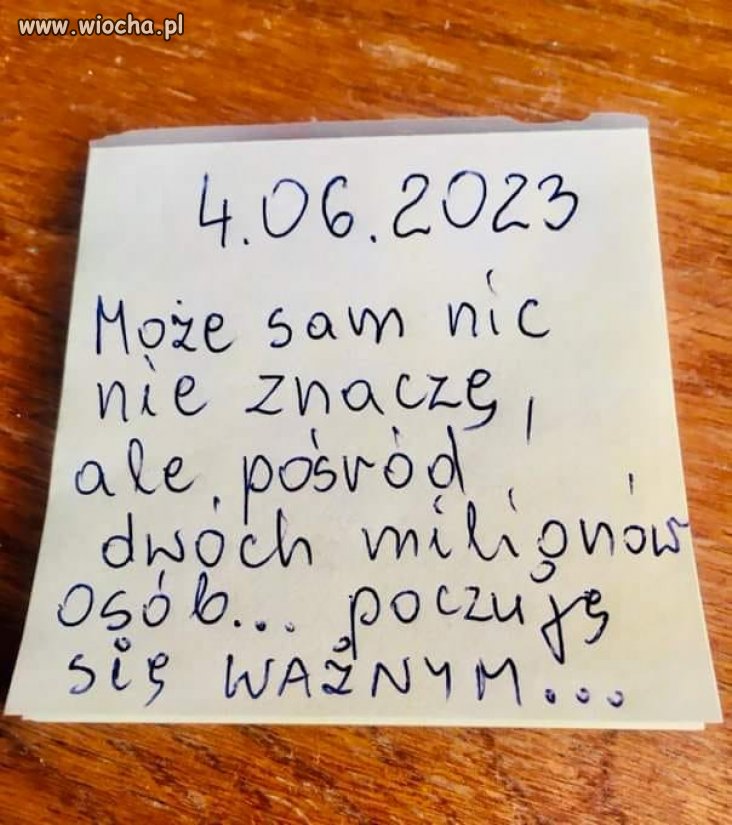 www.wiocha.pl
4.06.2023
Może sam nic
nie znaczę,
ale pośród
dwóch milionów
osób... poczuję
się WAŻNYM...